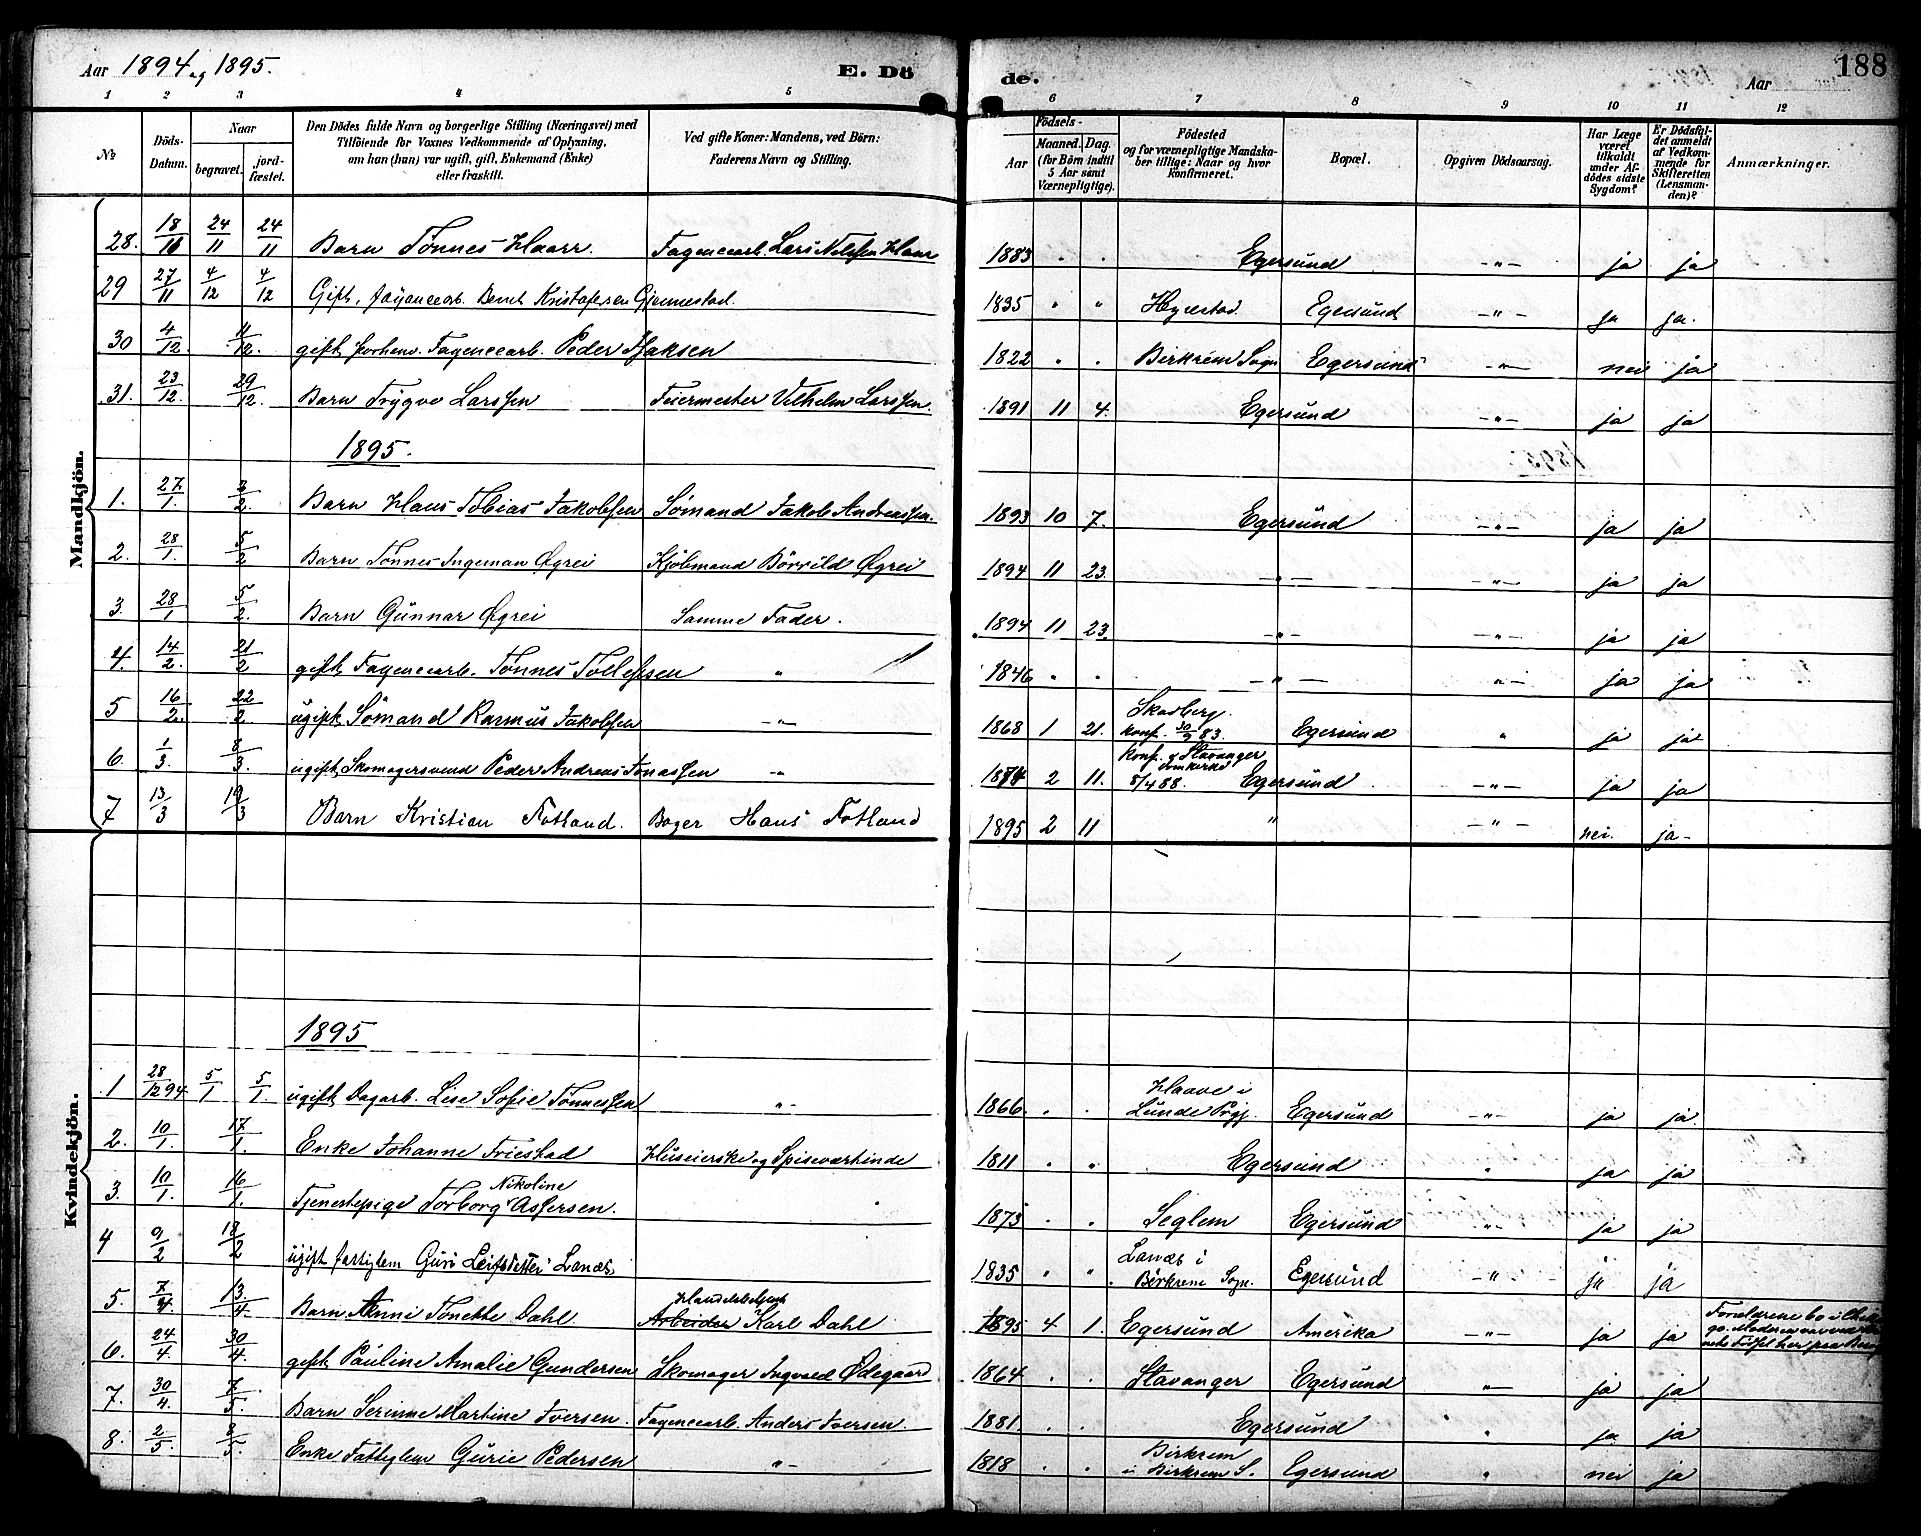 Aar 1894 og 1895. E. Dö de. Aar 188
1 2 3 4 5 6 7 8 9 10 11 12
No Döds-Datum. Naar begravet. jordfæstet. Den Dödes fulde Navn og borgerlige Stilling (Næringsvei) med Tilföiende for Voxnes Vedkommende af Oplysning, om han (hun) var ugift, gift, Enkemand (Enke) eller fraskilt. Ved gifte Koner: Mandens, ved Börn: Faderens Navn og Stilling. Födsels- Aar Maaned. Dag. (for Börn indtil 5 Aar samt Værnepligtige). Födested og for værnepligtige Mandskaber tillige: Naar og hvor konfirmeret. Bopæl. Opgiven Dödsaarsag. Har Læge været tilkaldt under Afdödes sidste Sygdom? Er Dödsfaldet anmeldt af Vedkommende for Skifteretten (Lensmanden)? Anmærkninger.
Mandkjön.
28. 18/11 24/11 24/11 Barn Tønnes Haarr. Fayencearb. Lars Nelssen Haar 1883 " " Egersund -"- ja ja
29 27/11 4/12 4/12 Gift, fayancearb. Bernt Kristofersen Gjermestad. 1835 " " Egersund -"- ja ja.
30 4/12. 11/12. gift forhenv. Fayencearb. Peder Isaksen 1822 " " Birkrem Sogn Egersund -"- nei ja
31. 23/12. 29/12. Barn Trygve Larssen Fuermester Vilhelm Larssen. 1891 11 4. Egersund -"- ja ja
1895.
1. 27/1. 3/2. Barn Hans Tobias Jakobssen Sømand Jakob Andreassen. 1893 10 7. Egersund -"- ja ja
2. 28/1. 5/2 Barn Tønnes Ingeman Øgrei Kjøbmand Børrild Øgrei 1894 11 23. -"- -"- ja ja
3. 28/1 5/2. Barn Gunnar Øgrei Samme Fader. 1894 11 23. -"- -"- ja ja
4. 14/2. 21/2 gift Fayencearb. Tønnes Tollefsen " 1846 " " -"- -"- ja ja
5 16/2. 22/2. ugift Sømand Rasmus Jakobssen -"- 1868 1 21. Skadberg. konf. 30/9 83. Egersund " ja ja
6. 1/3. 8/3. ugift Skomagersvend Peder Andreas Jonassen -"- 1874 2 11. Konf. v Stavanger domkirke 8/4 88. Egersund -"- ja ja
7 13/3 19/3 Barn Kristian Fotland. Bager Hans Fotland 1895 2 11 " -"- nei. ja-
Kvindekjön.
1895
1 28/12 94. 5/1 5/1. ugift Dagarb. Lise Sofie Tønnessen -"- 1866. " " Haave i Lunde Pgj. Egersund -"- ja ja.
2. 10/1. 17/1. Enke Johanne Friestad Huseierske og Spiseværtinde 1811 " " Egersund " ja ja
3. 10/1. 16/1. Tjenestepige Torborg Nikoline Assersen. " 1875 " " Seglem Egersund -"- ja ja
4 9/2 18/2 ugift fattiglem Guri Leifsdatter Lanæs. 1835 " " Lanæs i Birkrem Sogn. Egersund -"- ja ja
5. 7/4. 13./4. Barn Anni Tonette Dahl. Handelsbetjent Arbeider Karl Dahl 1895 4 1. Egersund Amerika -"- ja ja
6. 24/4. 30/4. gift Pauline Amalie Gundersen Skomager Ingvald Ødegaard 1864 " " Stavanger Egersund -"- ja ja
7. 30/4. 7/5. Barn Serinne Martine Iversen. Fayencearb. Anders Iversen. 1881. " " Egersund " ja ja
8. 2/5. 8/5. Enke Fattiglem Gurie Pedersen -"- 1818 " " Birkrem i Birkrem S. Egersund " nei ja